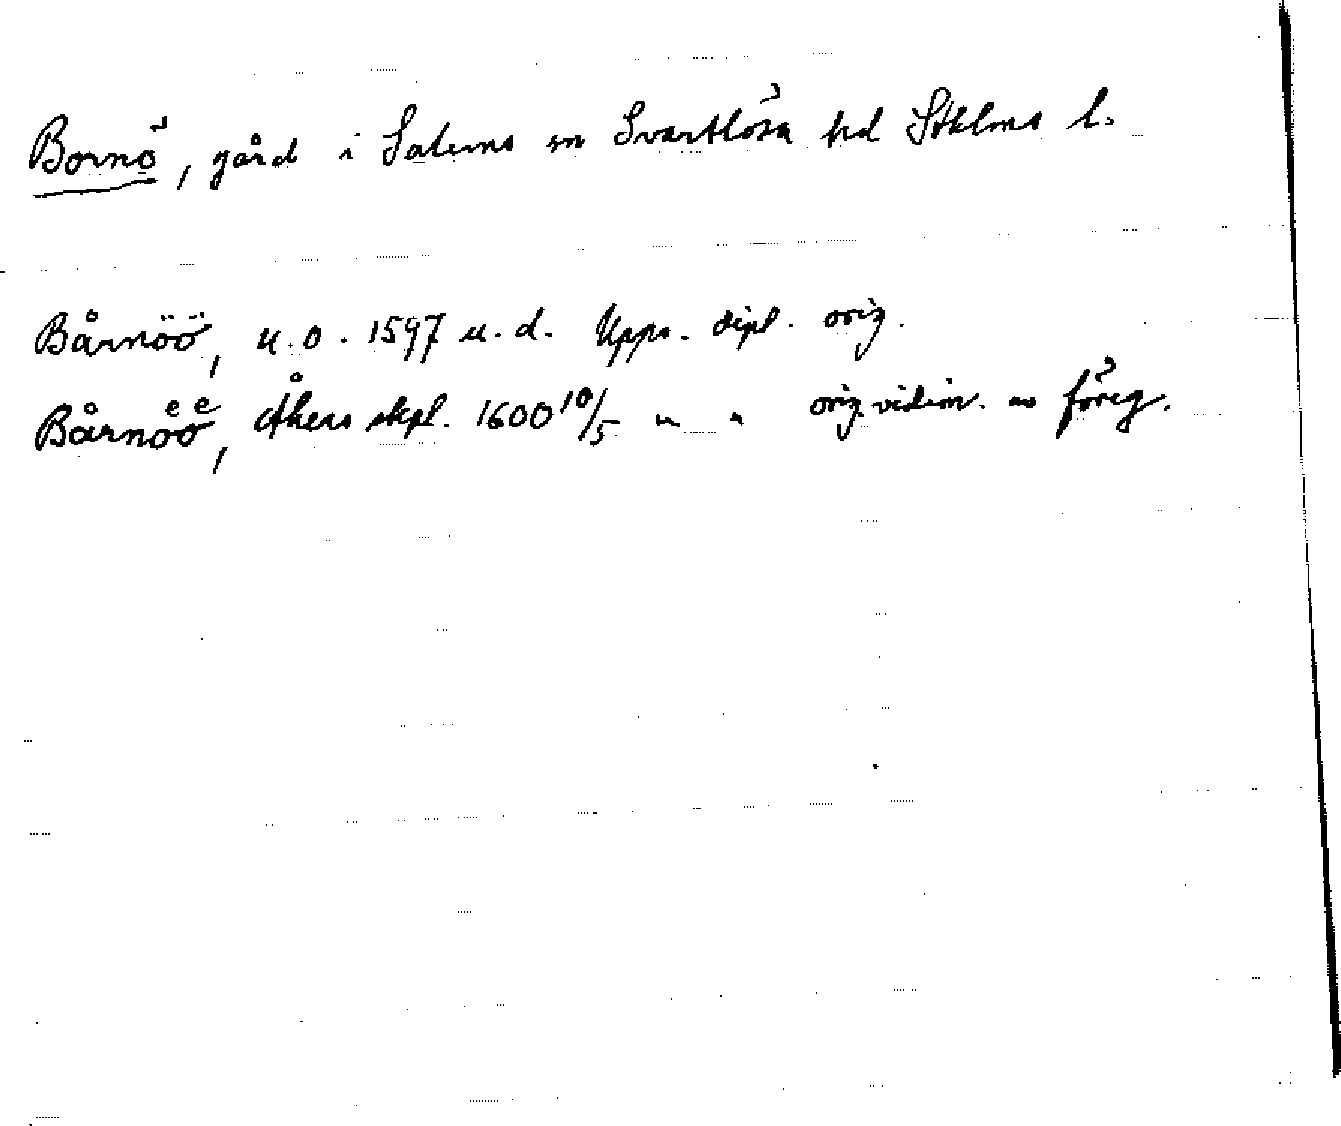 Bornö, gård i Salems sn Svartlösa hd Sthlms l.
Bårnöö, u.o. 1597 u.d. Upps. dipl. orig.
Bårnoͤoͤ, Åkers skpl. 1600 10/5 " " orig. vidim. av föreg.